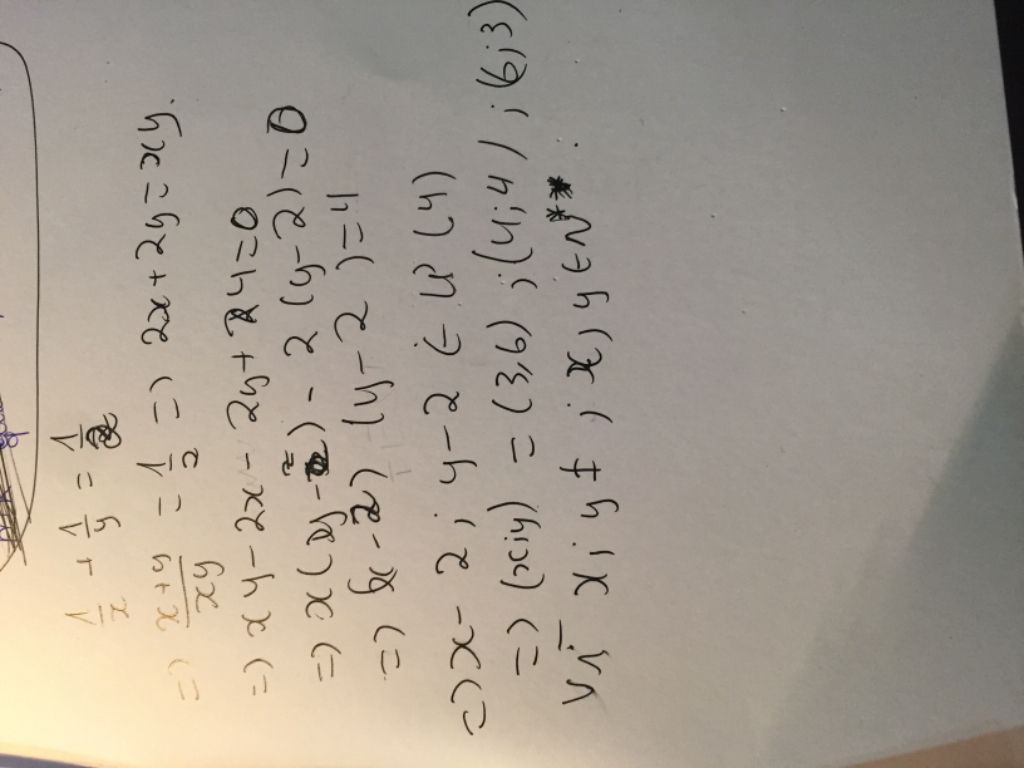 1/x + 1/y = 1/2
=> x+y/xy = 1/2 => 2x + 2y = xy.
=> xy - 2x - 2y + 24 = 0
=> x(y - 2) - 2(y - 2) = 0
=> (x - 2) (y - 2) = 4
=> x - 2 ; y - 2 ∈ Ư (4)
=> (x;y) = (3,6) ; (4;4) ; (6;3)
Vì x; y ; x; y ∈ N** .